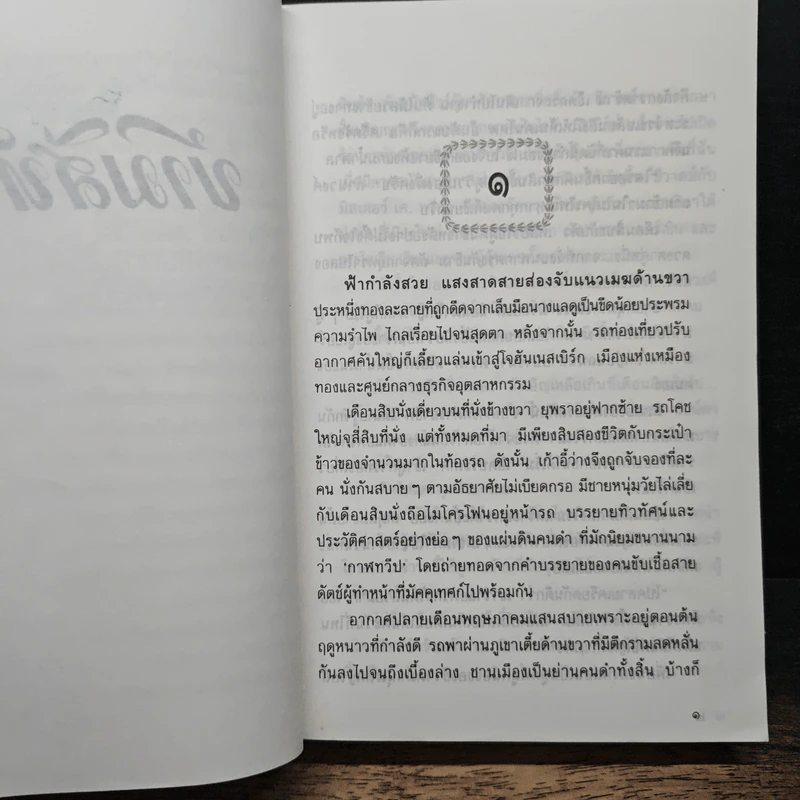 ๑
ฟ้ากำลังสวย แสงสาดสายส่องจับแนวเมฆด้านขวา
ประหนึ่งทองละลายที่ถูกดีดจากเล็บมือนางแลดูเป็นขีดน้อยประพรม
ความรำไพ ไกลเรื่อยไปจนสุดตา หลังจากนั้น รถท่องเที่ยวปรับ
อากาศคันใหญ่ก็เลี้ยวแล่นเข้าสู่โจฮันเนสเบิร์ก เมืองแห่งเหมือง
ทองและศูนย์กลางธุรกิจอุตสาหกรรม
เดือนสิบนั่งเดี่ยวบนที่นั่งข้างขวา ยุพราอยู่ฟากซ้าย รถโคช
ใหญ่จุสี่สิบที่นั่ง แต่ทั้งหมดที่มา มีเพียงสิบสองชีวิตกับกระเป๋า
ข้าวของจำนวนมากในท้องรถ ดังนั้น เก้าอี้ว่างจึงถูกจับจองทีละ
คน นั่งกันสบายๆ ตามอัธยาศัยไม่เบียดกรอ มีชายหนุ่มวัยไล่เลี่ย
กับเดือนสิบนั่งถือไมโครโฟนอยู่หน้ารถ บรรยายทิวทัศน์และ
ประวัติศาสตร์อย่างย่อๆ ของแผ่นดินคนดำ ที่มักนิยมขนานนาม
ว่า ‘กาฬทวีป’ โดยถ่ายทอดจากคำบรรยายของคนขับเชื้อสาย
ดัตช์ผู้ทำหน้าที่มัคคุเทศก์ไปพร้อมกัน
อากาศปลายเดือนพฤษภาคมแสนสบายเพราะอยู่ตอนต้น
ฤดูหนาวที่กำลังดี รถพาผ่านภูเขาเตี้ยด้านขวาที่มีตึกรามลดหลั่น
กันลงไปจนถึงเบื้องล่าง ชานเมืองเป็นย่านคนดำทั้งสิ้น บ้างก็
๑